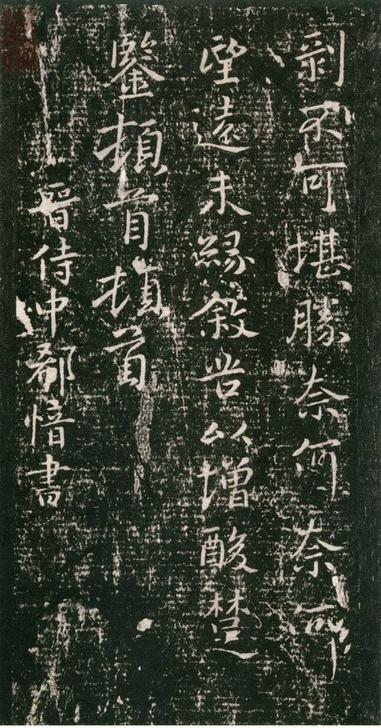 剝不可堪勝奈何奈何
望遠未緣敘苦以增酸楚
鑒頓首頓首
晉侍中郗愔書